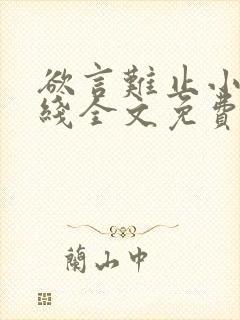 欲言難止小
綫全文免費
蘭山中